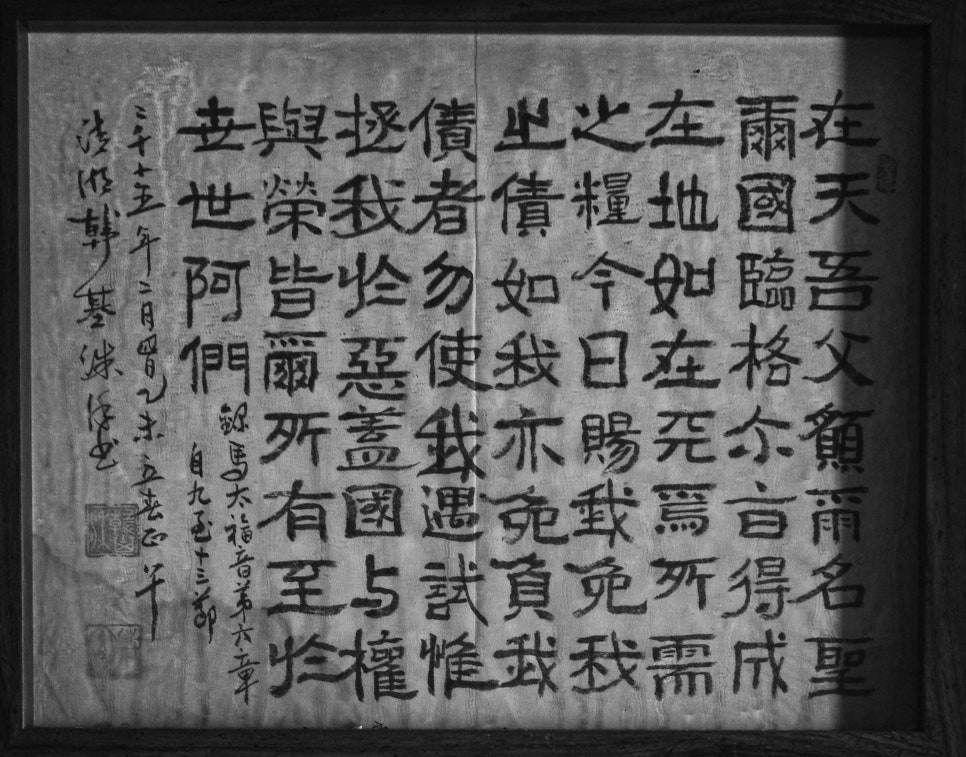 在天吾父願爾名聖
爾國臨格尒旨得成
在地如在天焉所需
之糧今日賜我免我
之債如我亦免負我
債者勿使我遇試惟
拯我於惡蓋國与權
與榮皆爾所有至於
世世阿們
錄馬太福音第六章
自九至十三節
二千十五年二月乙未立春正午
韓基洙書